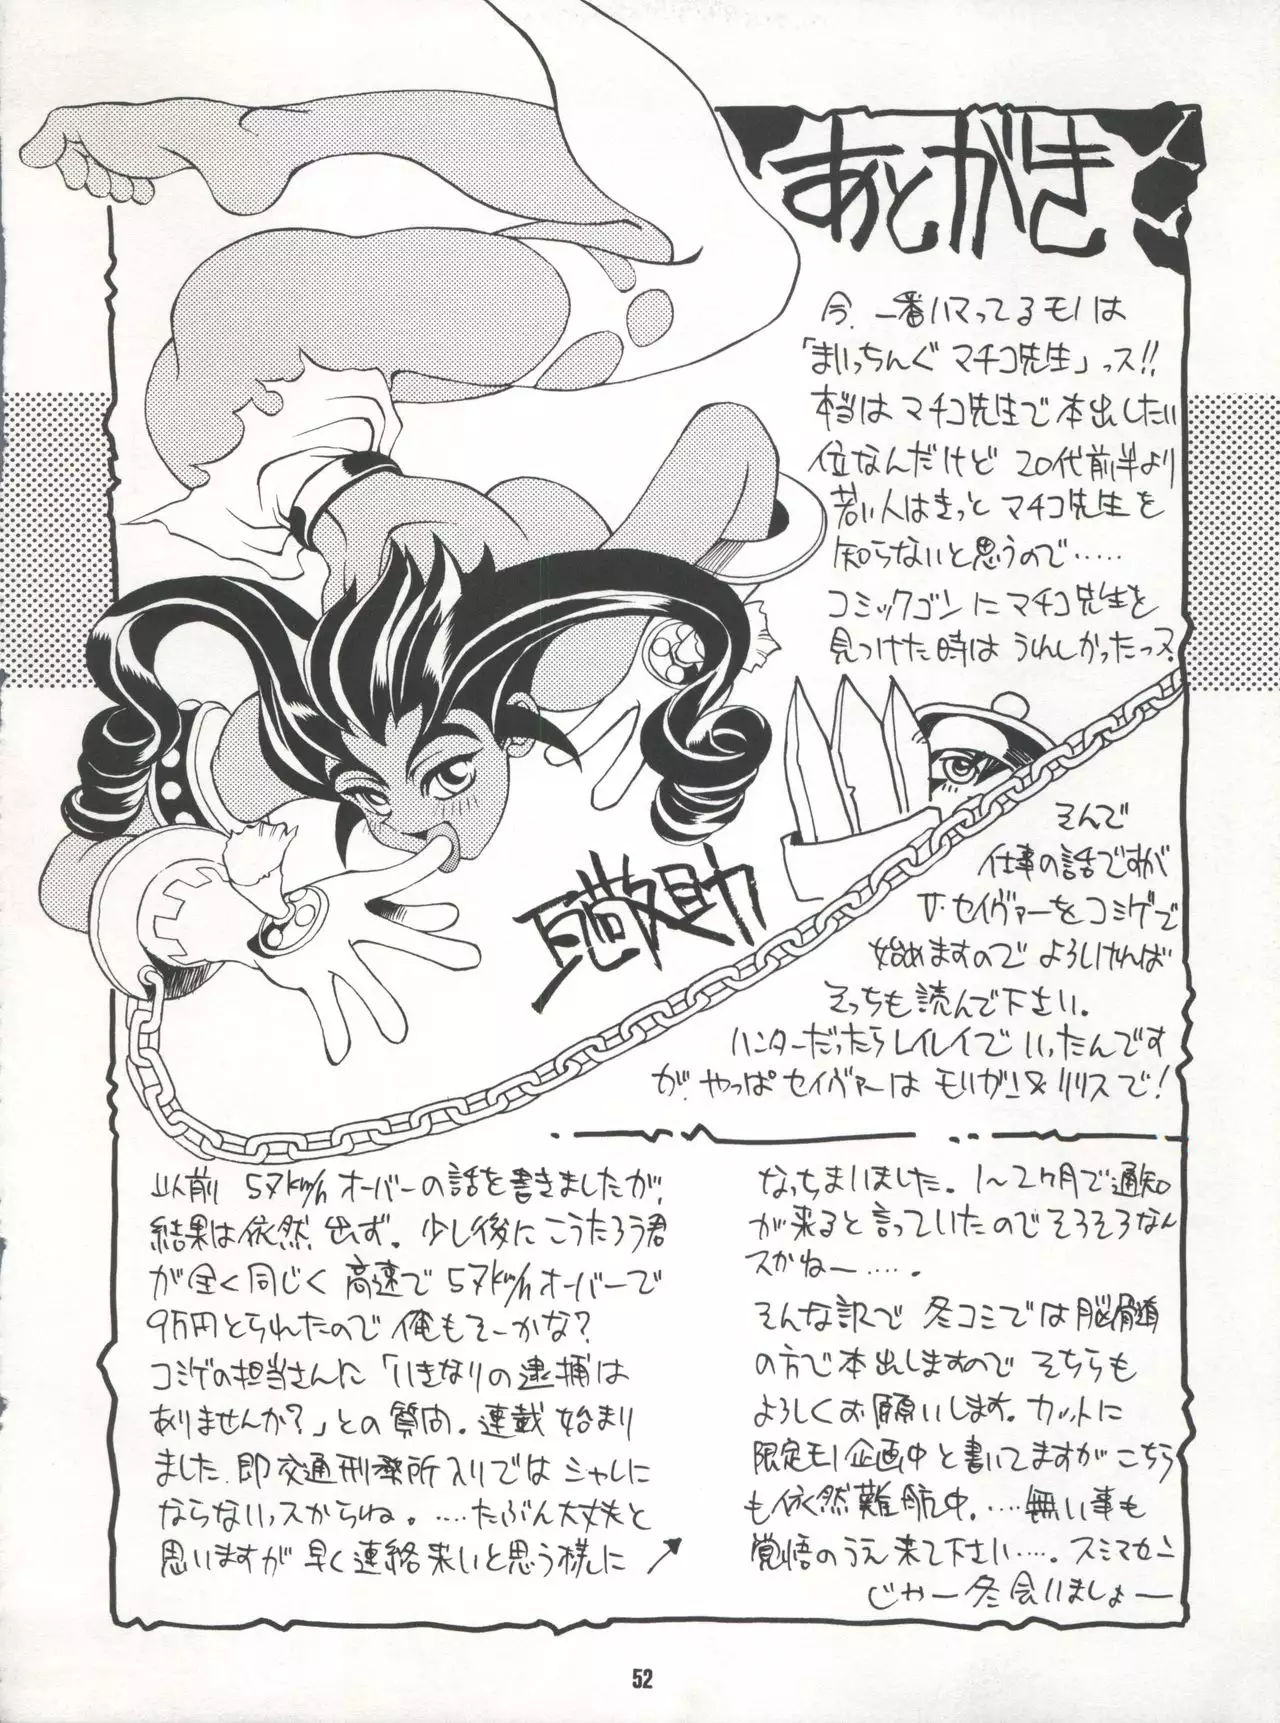 あとがき
今、一番ハマってるモノは
「まいっちんぐマチコ先生」っス!!
本当はマチコ先生で本出したい
位なんだけど 20代前半より
若い人はきっとマチコ先生を
知らないと思うので……
コミックゴンにマチコ先生を
見つけた時は うれしかったっス。
そんで
仕事の話ですが
V・セイヴァーをコミゲで
始めますので よろしければ
そっちも読んで下さい。
ハンターだったらレイレイでいったんです
が、やっぱセイヴァーはモリガン&リリスで!
以前 57km/hオーバーの話を書きましたが、
結果は依然 出ず。少し後にこうたろう君
が全く同じく 高速で 57km/hオーバーで
9万円とられたので 俺もそーかな?
コミゲの担当さんに「いきなりの逮捕は
ありませんか?」との質問。連載始まり
ました、即交通刑務所入りではシャレに
ならないっスからね。……たぶん大丈夫と
思いますが 早く連絡来いと思う様に
なっちまいました。1〜2ヶ月で通知
が来ると言っていたのでそろそろなん
スかねー……。
そんな訳で 冬コミでは脳髄
の方で本出しますので そちらも
よろしくお願いします。カットに
限定モノ企画中と書いてますが こちら
も依然難航中。……無い事も
覚悟のうえ来て下さい……。スミマセン
じゃー冬会いましょー
52